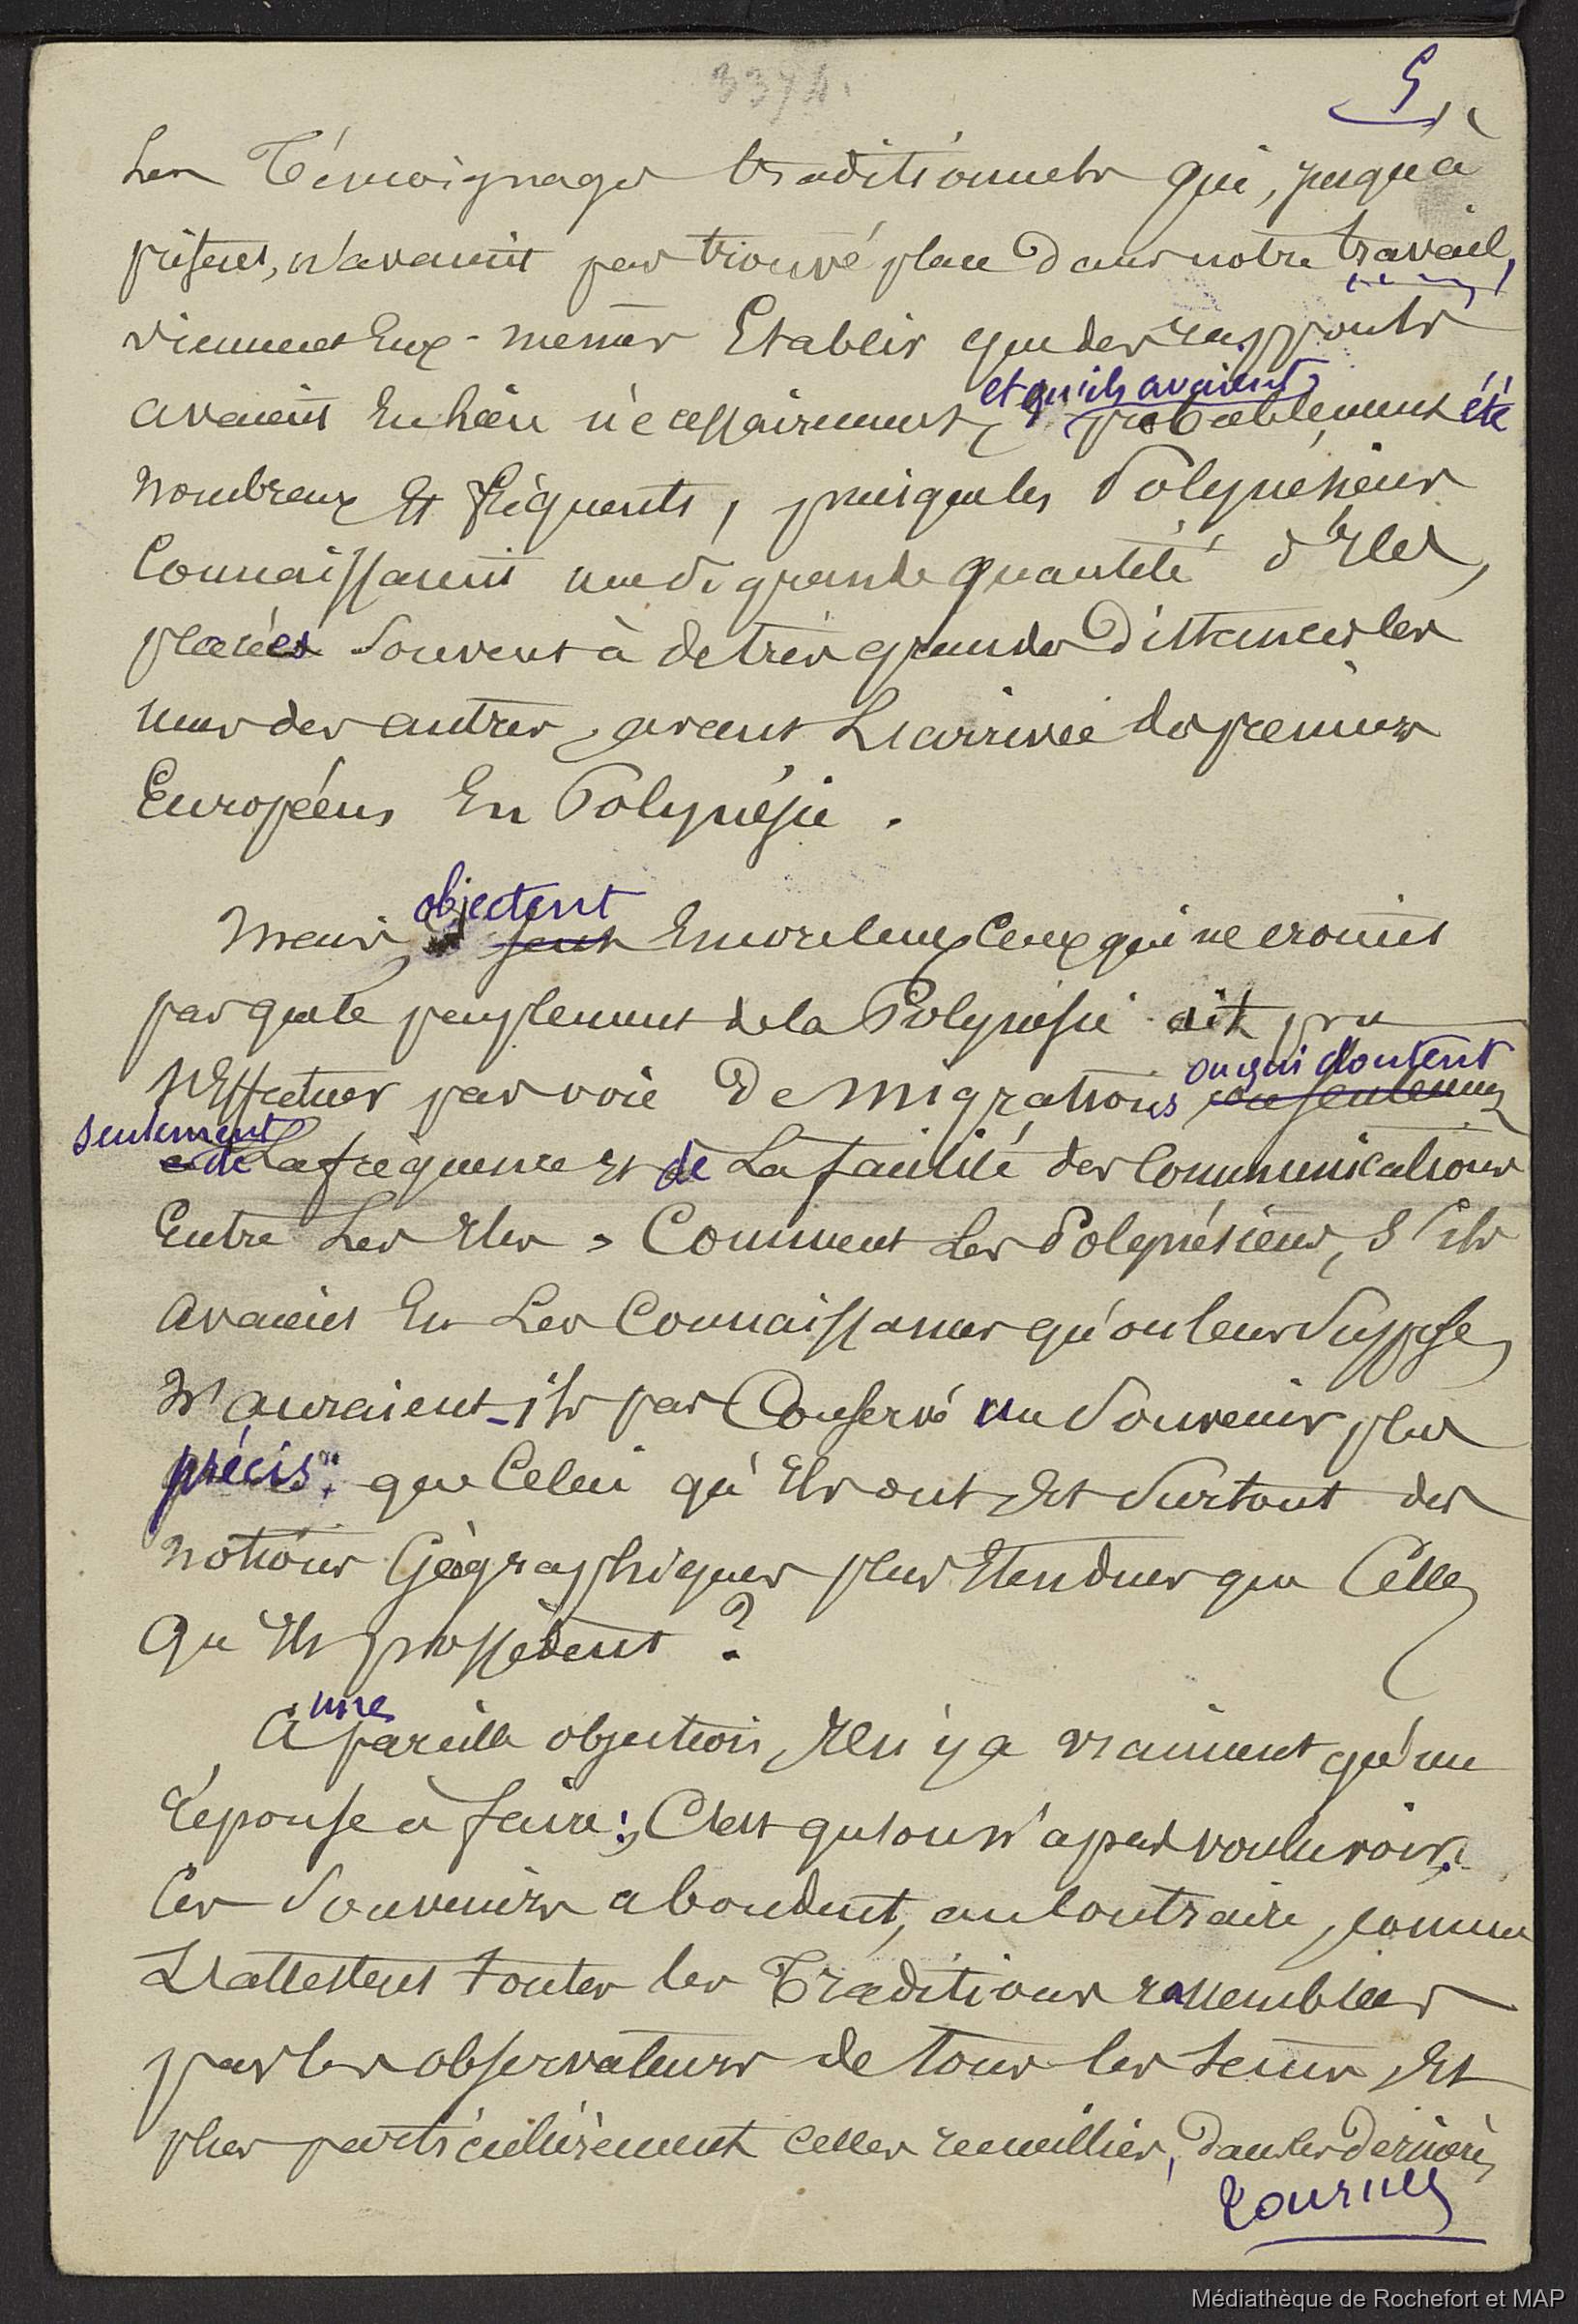 3374.
5
Les Témoignages traditionnels qui, jusqu'à
présent, n'avaient pas trouvé place dans notre travail,
viennent Eux-mêmes Etablir que des rapports
et qu'ils avaient
avaient Eu lieu nécessairement, probablement été
nombreux Et fréquents, puisque les Polynésiens
Connaissaient une si grande quantité d'Iles,
placées souvent à de très grandes Distances les
unes des autres, avant L'arrivée des premiers
Européens En Polynésie.
objectent
Mais, sont Encore ceux qui ne croient
pas que le peuplement de la Polynésie ait pu
s'Effectuer par voie De migrations ou qui doutent
ou seulement
seulement
de La fréquence Et de La facilité des Communications
Entre Les Iles, Comment les Polynésiens, s'ils
avaient Eu Les Connaissances qu'on leur suppose,
N'auraient-ils pas Conservé un souvenir plus
précis que Celui qu'Ils ont, Et surtout des
notions Géographiques plus Etendues que Celles
qu'Ils possèdent ?
une
A pareille objection, Il n'y a vraiment qu'une
réponse à faire : C'est qu'on n'a pas voulu voir.
Ces souvenirs abondent, au Contraire, comme
L'attestent toutes les Traditions rassemblées
par les observateurs de tous les temps, Et
plus particulièrement celles recueillies, Dans les Dernières
Tournez
Médiathèque de Rochefort et MAP